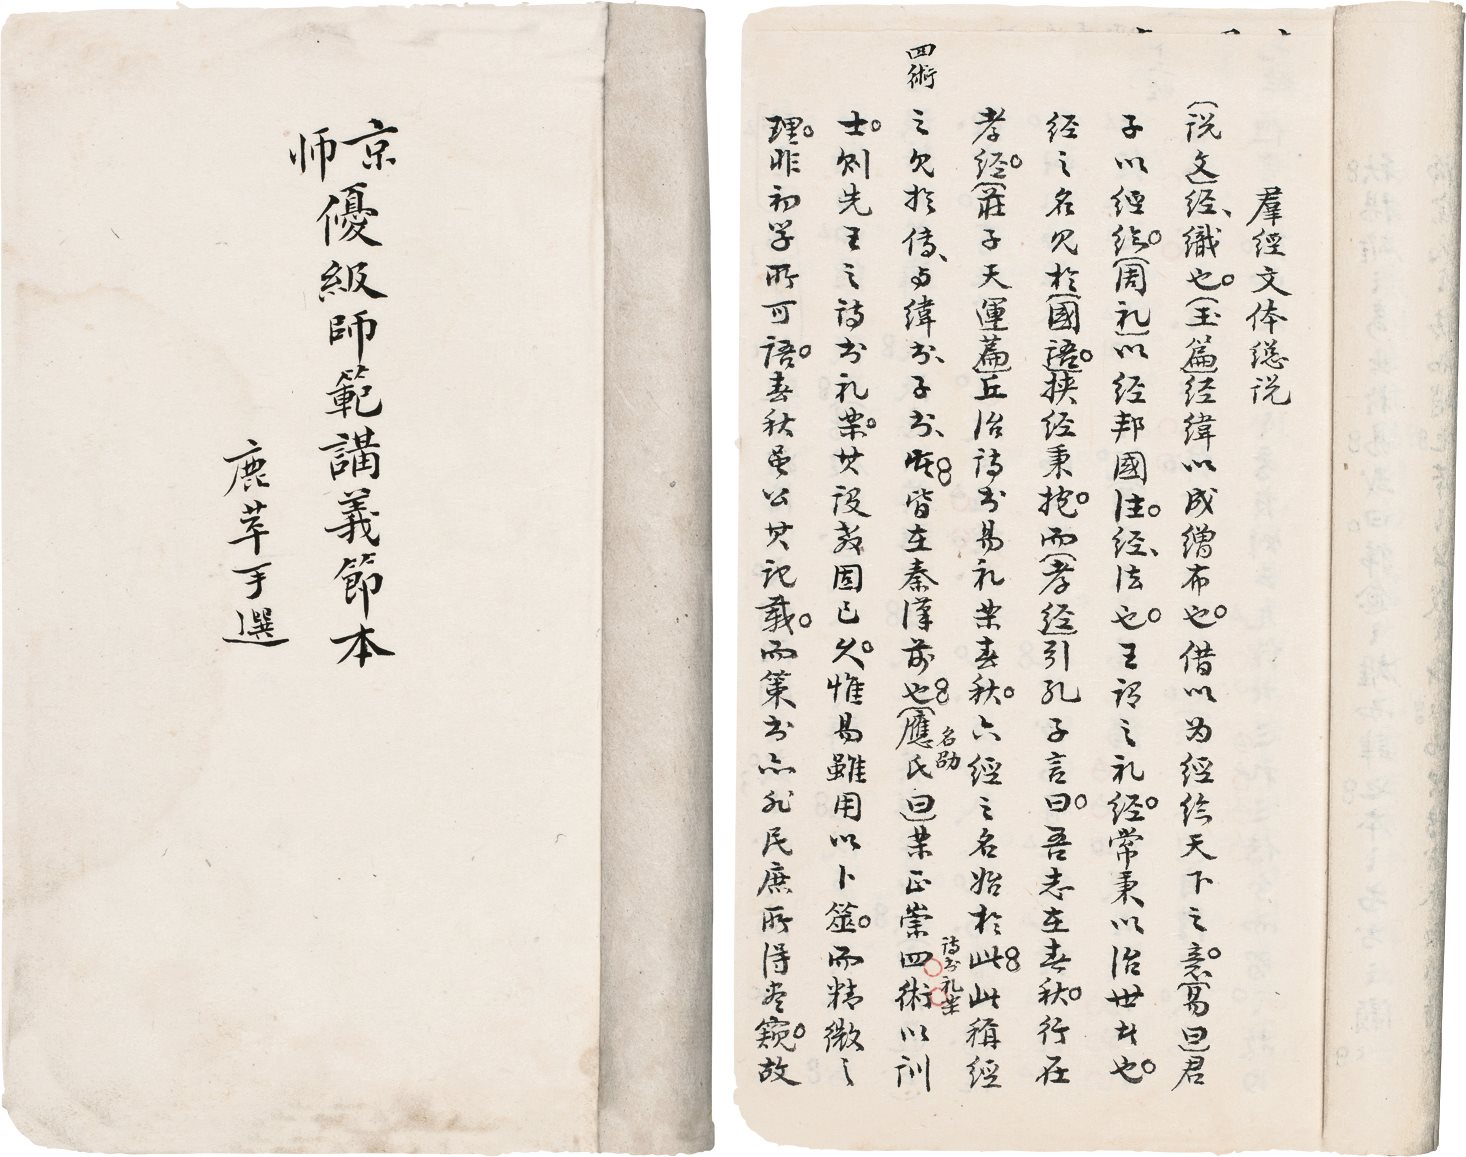 京師
優級師範講義節本
鹿苹手選
羣經文体總说
说文经、織也。玉篇经緯以成繒布也。借以为經綸天下之意。易曰君
子以經綸。周礼以经邦國注。经、法也。王謂之礼經。常秉以治世者也。
经之名见於國語。挟经秉枹。而孝经引孔子言曰。吾志在春秋。行在
孝经。莊子天運篇丘治詩书易礼樂春秋。六經之名始於此。此稱經
之見於傳、与緯书、子书、皆在秦漢前也。應氏曰樂正崇四術以訓
名劭
詩书礼樂
四術
士。则先王之詩书礼樂。其設教固已久。惟易雖用以卜筮。而精微之
理。非初学所可語。春秋虽公其记载。而策书亦非民庶所得尽窺。故